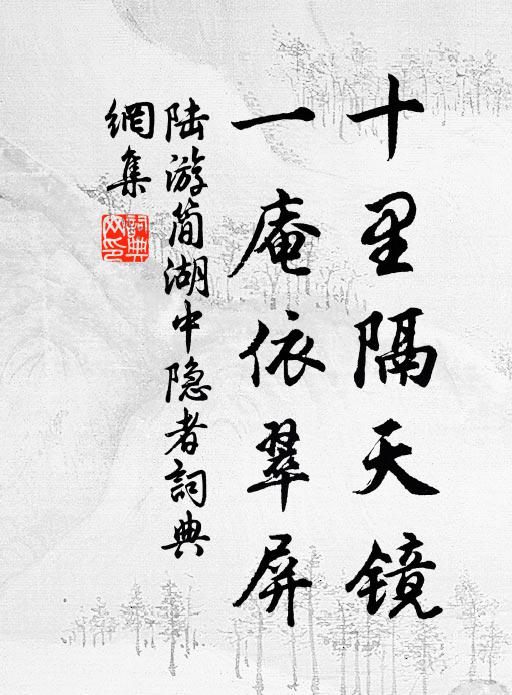 十里隔天镜
一庵依翠屏
陆游简湖中隐者詞典
網集
詞典
网印